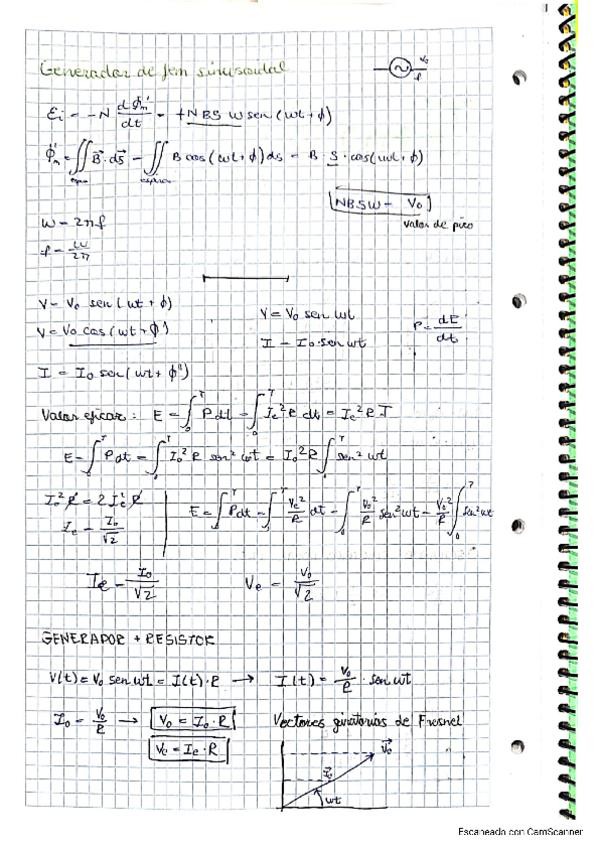 Generador de fem sinusoidal
V₀
f
Ɛi = -N dΦm/dt = +NBS w sen (wt+ϕ)
Φm = ∬ B⃗·ds⃗ = ∬ B cos(wt+ϕ) ds = B S·cos(wt+ϕ)
espira espira
NBSW = V₀
valor de pico
W = 2πf
f = W/2π
V = V₀ sen(wt+ϕ)
V = V₀ cos(wt+ϕ')
V = V₀ sen wt
I = I₀·sen wt
P = dE/dt
I = I₀ sen(wt+ϕ')
Valor eficaz: E = ∫₀ᵀ P dt = ∫₀ᵀ Ie²R dt = Ie²R T
E = ∫₀ᵀ P dt = ∫₀ᵀ I₀²R sen² wt = I₀²R ∫₀ᵀ sen² wt
I₀² R = 2 Ie² R
Ie = I₀/√2
E = ∫₀ᵀ P dt = ∫₀ᵀ Ve²/R dt = ∫₀ᵀ V₀²/R sen² wt = V₀²/R ∫₀ᵀ sen² wt
Ie = I₀/√2
Ve = V₀/√2
GENERADOR + RESISTOR
V(t) = V₀ sen wt = I(t)·R → I(t) = V₀/R · sen wt
I₀ = V₀/R → V₀ = I₀·R
Ve = Ie·R
Vectores giratorios de Fresnel
V⃗₀
I⃗₀
wt
Escaneado con CamScanner